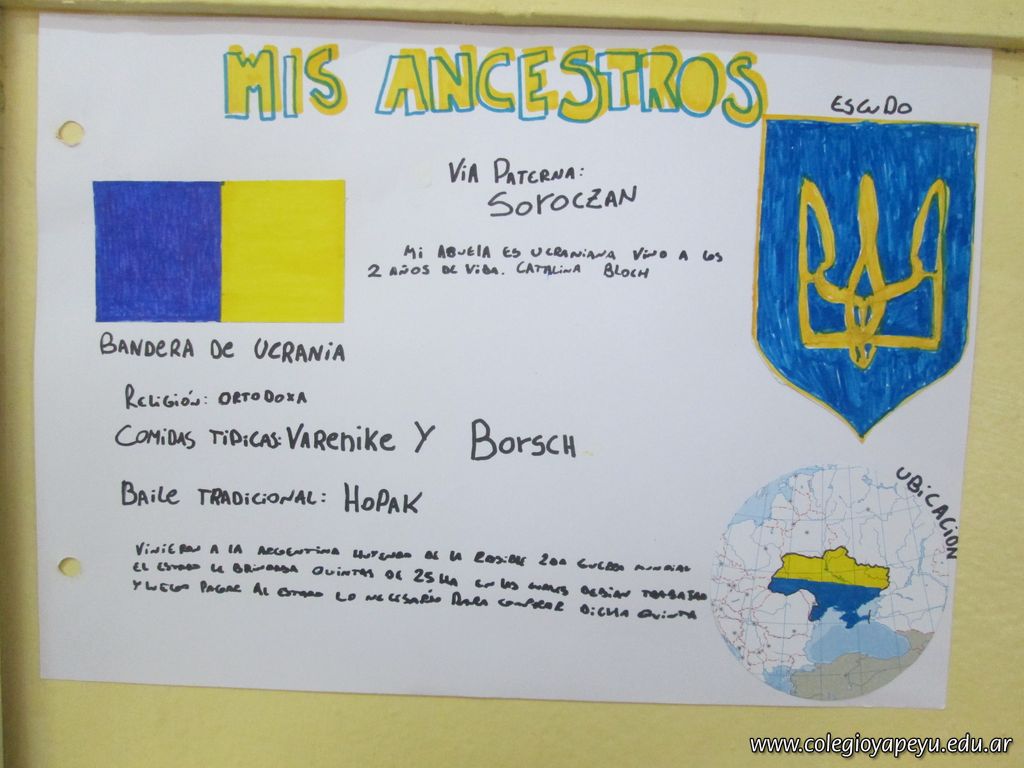 MIS ANCESTROS
ESCUDO
VIA PATERNA:
SOROCZAN
MI ABUELA ES UCRANIANA VINO A LOS
2 AÑOS DE VIDA. CATALINA BLOCH
BANDERA DE UCRANIA
RELIGIÓN: ORTODOXA
COMIDAS TIPICAS: VARENIKE Y BORSCH
BAILE TRADICIONAL: HOPAK
UBICACION
VINIERON A LA ARGENTINA HUYENDO DE LA POSIBLE 2DA GUERRA MUNDIAL
EL ESTADO LE BRINDABA QUINTAS DE 25 HA EN LAS CUALES DEBIAN TRABAJAR
Y LUEGO PAGAR AL ESTADO LO NECESARIO PARA COMPRAR DICHA QUINTA
www.colegioyapeyu.edu.ar